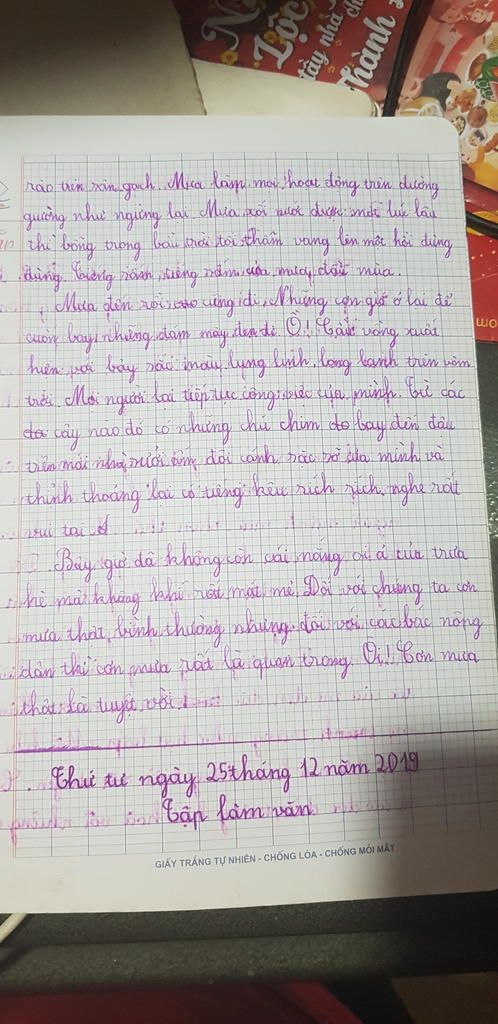 Lộc
tầy nhà ch
Thành
rào trên sân gạch. Mưa làm mọi hoạt động trên đường
guờng như ngừng lại. Mưa xối nước được một lúc lâu
thì bỗng trong bầu trời tối thẫm vang lên một hồi dùng
dùng. tiếng sấm của mưa đầu mùa.
Mưa đến rồi cũng đi, Những cơn gió ở lại để
cuốn bay những đám mây đen đi. Ồ! Cầu vồng xuất
hiện với bảy sắc màu lung linh, long lanh trên vòm
trời. Mọi người lại tiếp tục công việc của mình. Từ các
cây nào đó có những chú chim bay đến đậu
trên mái nhà đôi cánh sặc sỡ của mình và
thỉnh thoảng lại có tiếng kêu rích rích nghe rất
vui tai.
Bây giờ đã không còn cái nóng oi ả của trưa
hè mà không khí rất mát mẻ. Đối với chúng ta cơn
mưa thật bình thường nhưng đối với các bác nông
dân thì cơn mưa rất là quan trọng. Ôi! Cơn mưa
thật là tuyệt vời!
Thứ tư ngày 25 tháng 12 năm 2019
Tập làm văn
GIẤY TRẮNG TỰ NHIÊN - CHỐNG LÓA - CHỐNG MỎI MẮT